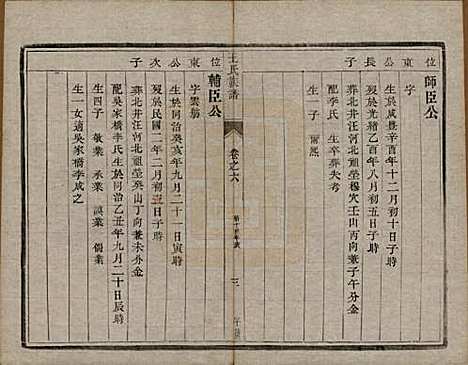 位東公長子
師臣公
字
生於咸豐辛酉年十二月初十日子時
歿於光緒乙酉年八月初五日子時
葬北井汪河北祖塋穆穴壬山丙向兼子午分金
配李氏 生卒葬失考
生一子 爾熙
王氏族譜
卷之六
三
位東公次子
輔臣公
字雲鵬
生於同治癸亥年九月二十一日寅時
歿於民國二年二月初五日子時
葬北井汪河北祖塋癸山丁向兼未分金
配吳家橋李氏生於同治乙丑年九月二十日辰時
生四子 敬業 承業 謨業 儒業
生一女適吳家橋李成之